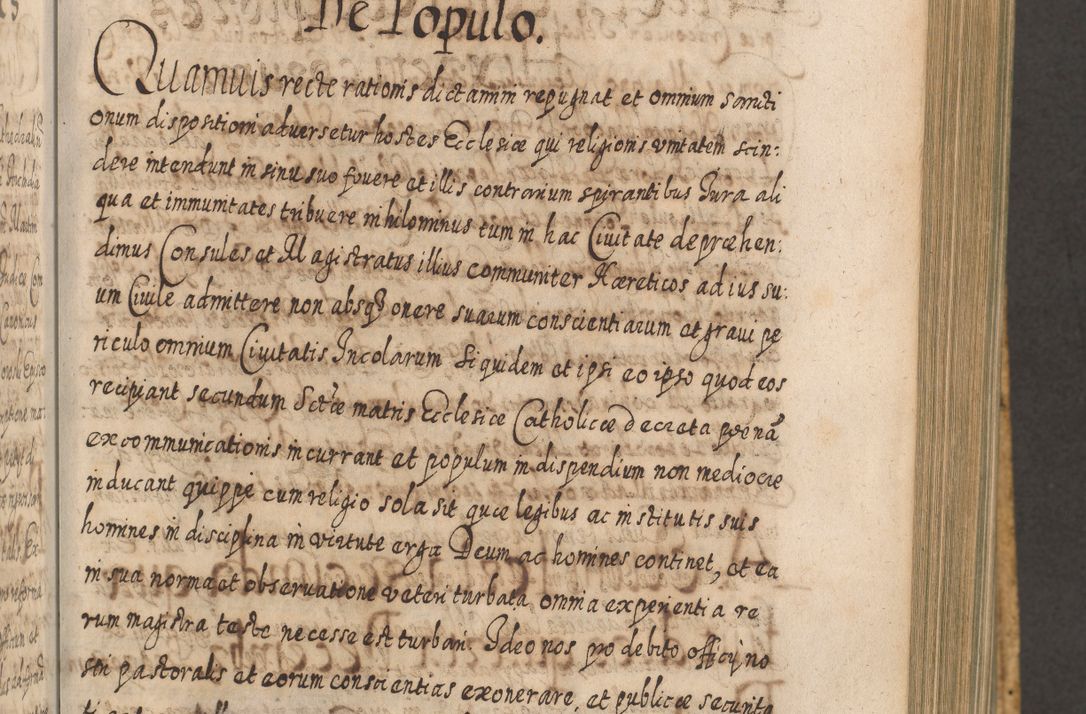 De Populo.
Quamuis recte rationis dictamini repugnat et omnium sancti
onum dispositioni aduersetur hostes Ecclesiæ qui religionis vnitatem scin:
dere intendunt in sinu suo fouere et illis contrarium spirantibus Iura ali
qua et immunitates tribuere nihilominus tum in hac Ciuitate depræhen:
dimus Consules et Magistratus illius communiter Hæreticos ad ius su:
um Ciuile admittere non absq3 onere suarum conscientiarum et graui pe
riculo omnium Ciuitatis Incolarum siquidem et ipsi eo ipso quod eos
recipiant secundum Sctæ matris Ecclesiæ Catholicæ Decreta pœnā
excommunicationis incurrant et populum in dispendium non mediocre
inducant quippe cum religio sola sit quæ legibus ac institutis suis
homines in disciplina in virtute erga Deum ac homines continet, et ea
in sua norma et obseruatione veteri turbata omnia experientia re
rum magistra teste necesse est turbari. Ideo nos pro debito officij no
stri pastoralis et eorum conscientias exonerare, et publicæ securita